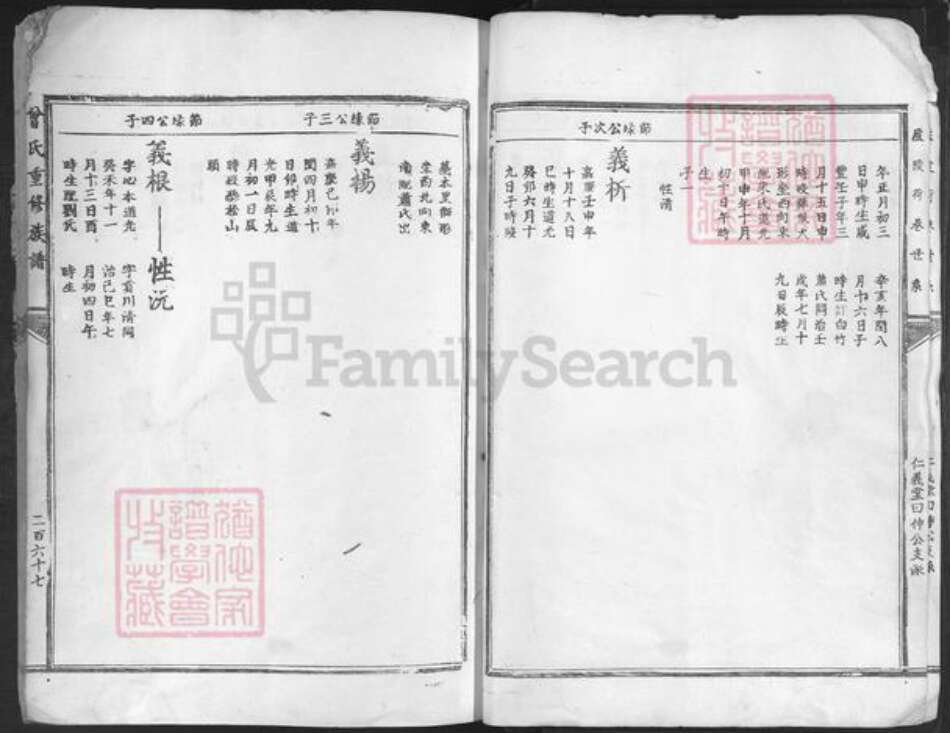 節垛公次子
年正月初三
日申時生咸
豐壬子年三
月十五日申
時歿葬猴犬
形坐西向東
配宋氏道光
甲申年十月
初十日午時
生
子一
性清
辛亥年閏八
月十六日子
時生訂白竹
蕭氏同治壬
戌年七月十
九日辰時生
義析
嘉慶壬申年
十月十八日
巳時生道光
癸卯六月十
九日子時歿
節垛公三子
節垛公四子
葬本里獅形
坐西北向東
南配蕭氏出
義揚
嘉慶己卯年
閏四月初十
日卯時生道
光甲辰年九
月初一日辰
時歿葬松山
頭
義根
字心本道光
癸未年十一
月十三日酉
時生聘劉氏
性沅
字貢川清同
治己巳年七
月初四日午
時生
曾氏重修族譜
二百六十七
仁義堂曰仲公支派
FamilySearch